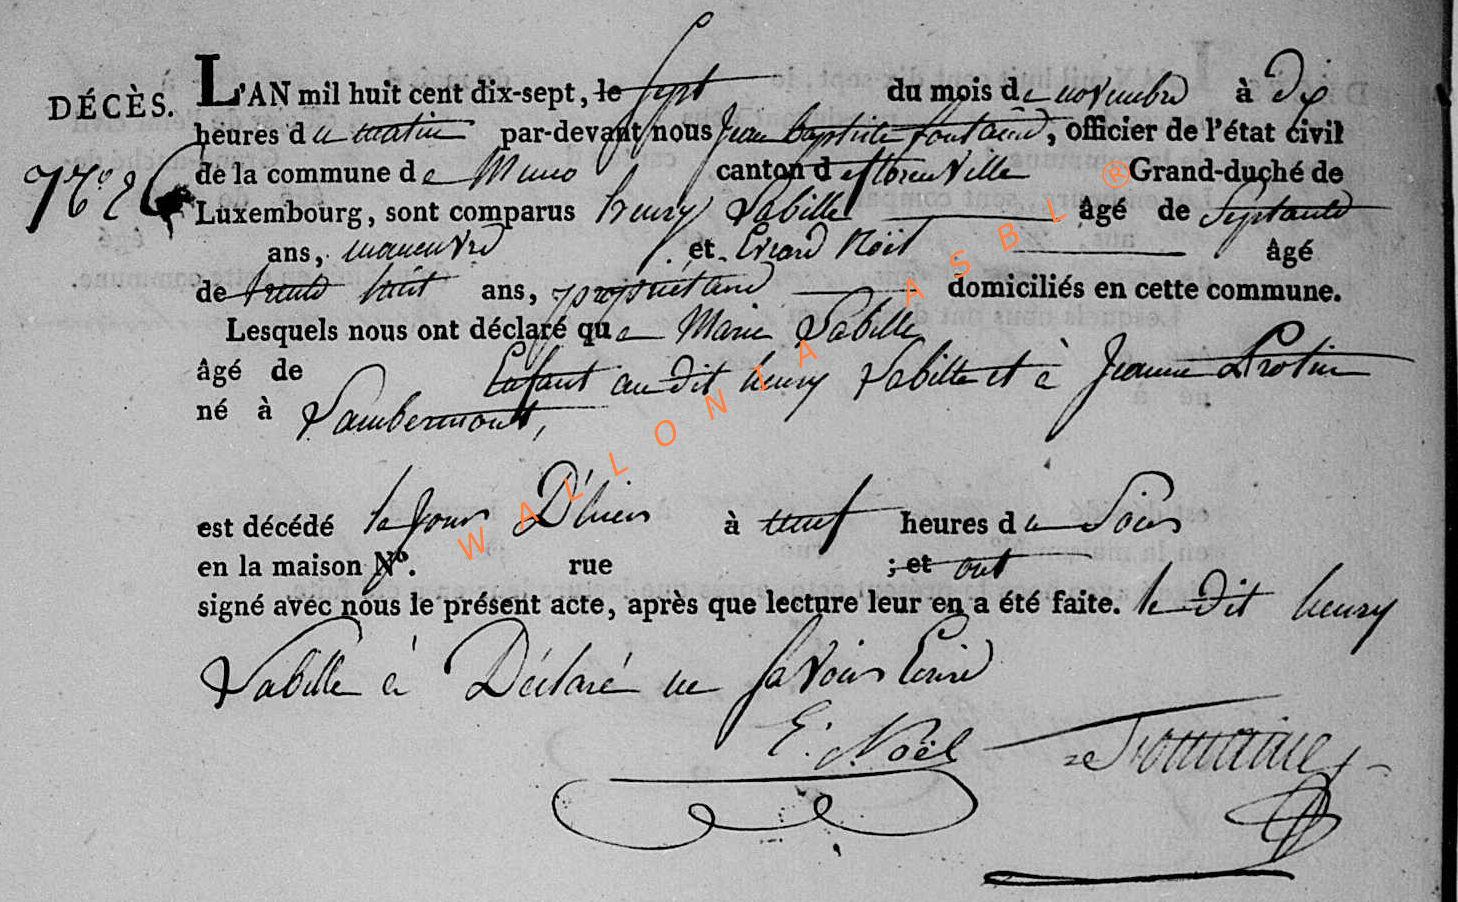 DÉCÈS. L'AN mil huit cent dix-sept, le sept du mois de novembre à dix
heures du matin par-devant nous Jean baptiste fontaine, officier de l'état civil
de la commune de Muno canton de florenville Grand-duché de
Luxembourg, sont comparus henry Labille âgé de Septante
ans, maneuvre et Erard Noël âgé
de trente huit ans, propriétaire domiciliés en cette commune.
Lesquels nous ont déclaré que Marie Labille
âgé de Enfant au dit henry Labille et à Jeanne Protin
né à Lambermont,
est décédé le jour D'hier à neuf heures du Soir
en la maison N°. rue ; et ont
signé avec nous le présent acte, après que lecture leur en a été faite. le dit henry
Labille à Déclaré ne savoir Ecrire
E. Noël fontaine
WALLONIA ASBL ®